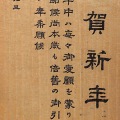 賀新年
年中は毎々御愛顧を蒙り
候尚本歳も倍舊の御引
奉希願候